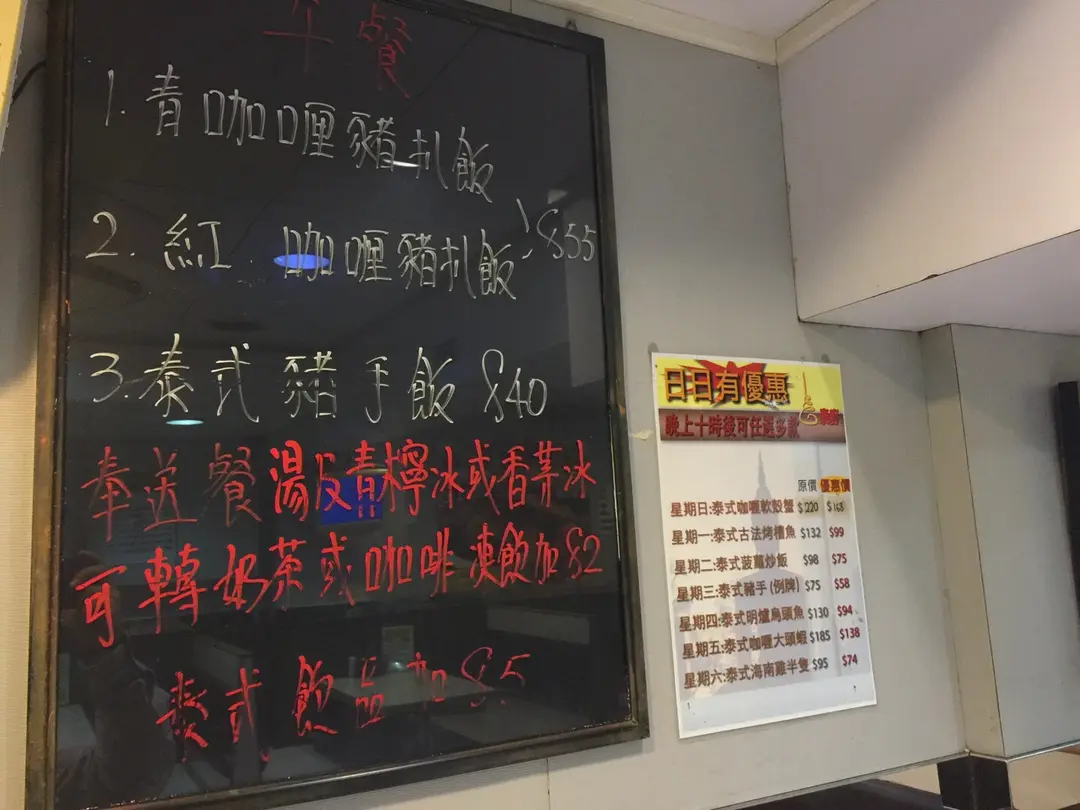 午餐
1. 青咖喱豬扒飯
2. 紅咖喱豬扒飯 } $55
3. 泰式豬手飯 $40
奉送餐湯及青檸冰或香茅冰
可轉奶茶或咖啡 凍飲加$2
泰式飲品加$5
日日有優惠
晚上十時後可任選多款
原價 優惠價
星期日:泰式咖喱軟殼蟹 $220 $168
星期一:泰式古法烤檣魚 $132 $99
星期二:泰式菠蘿炒飯 $98 $75
星期三:泰式豬手 (例牌) $75 $58
星期四:泰式明爐烏頭魚 $130 $94
星期五:泰式咖喱大頭蝦 $185 $138
星期六:泰式海南雞半隻 $95 $74